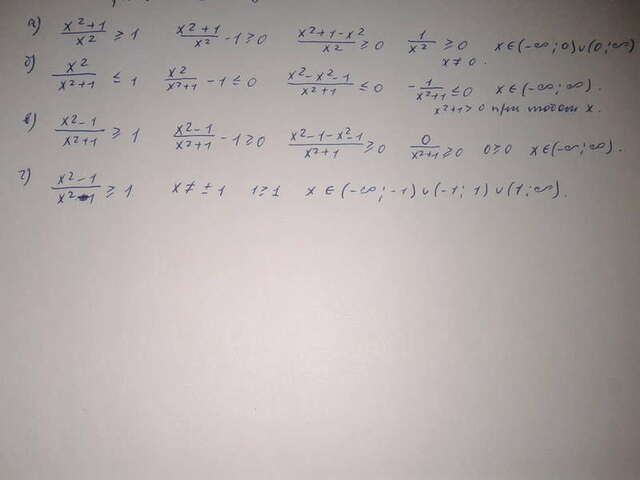 а) (x²+1)/x² ≥ 1   (x²+1)/x² - 1 ≥ 0   (x²+1-x²)/x² ≥ 0   1/x² ≥ 0   x ∈ (-∞; 0) ∪ (0; ∞)
x ≠ 0.
б) x²/(x²+1) ≤ 1   x²/(x²+1) - 1 ≤ 0   (x²-x²-1)/(x²+1) ≤ 0   -1/(x²+1) ≤ 0   x ∈ (-∞; ∞).
x²+1 > 0 при любом x.
в) (x²-1)/(x²+1) ≥ 1   (x²-1)/(x²+1) - 1 ≥ 0   (x²-1-x²-1)/(x²+1) ≥ 0   0/(x²+1) ≥ 0   0 ≥ 0   x ∈ (-∞; ∞).
г) (x²-1)/(x²-1) ≥ 1   x ≠ ± 1   1 ≥ 1   x ∈ (-∞; -1) ∪ (-1; 1) ∪ (1; ∞).